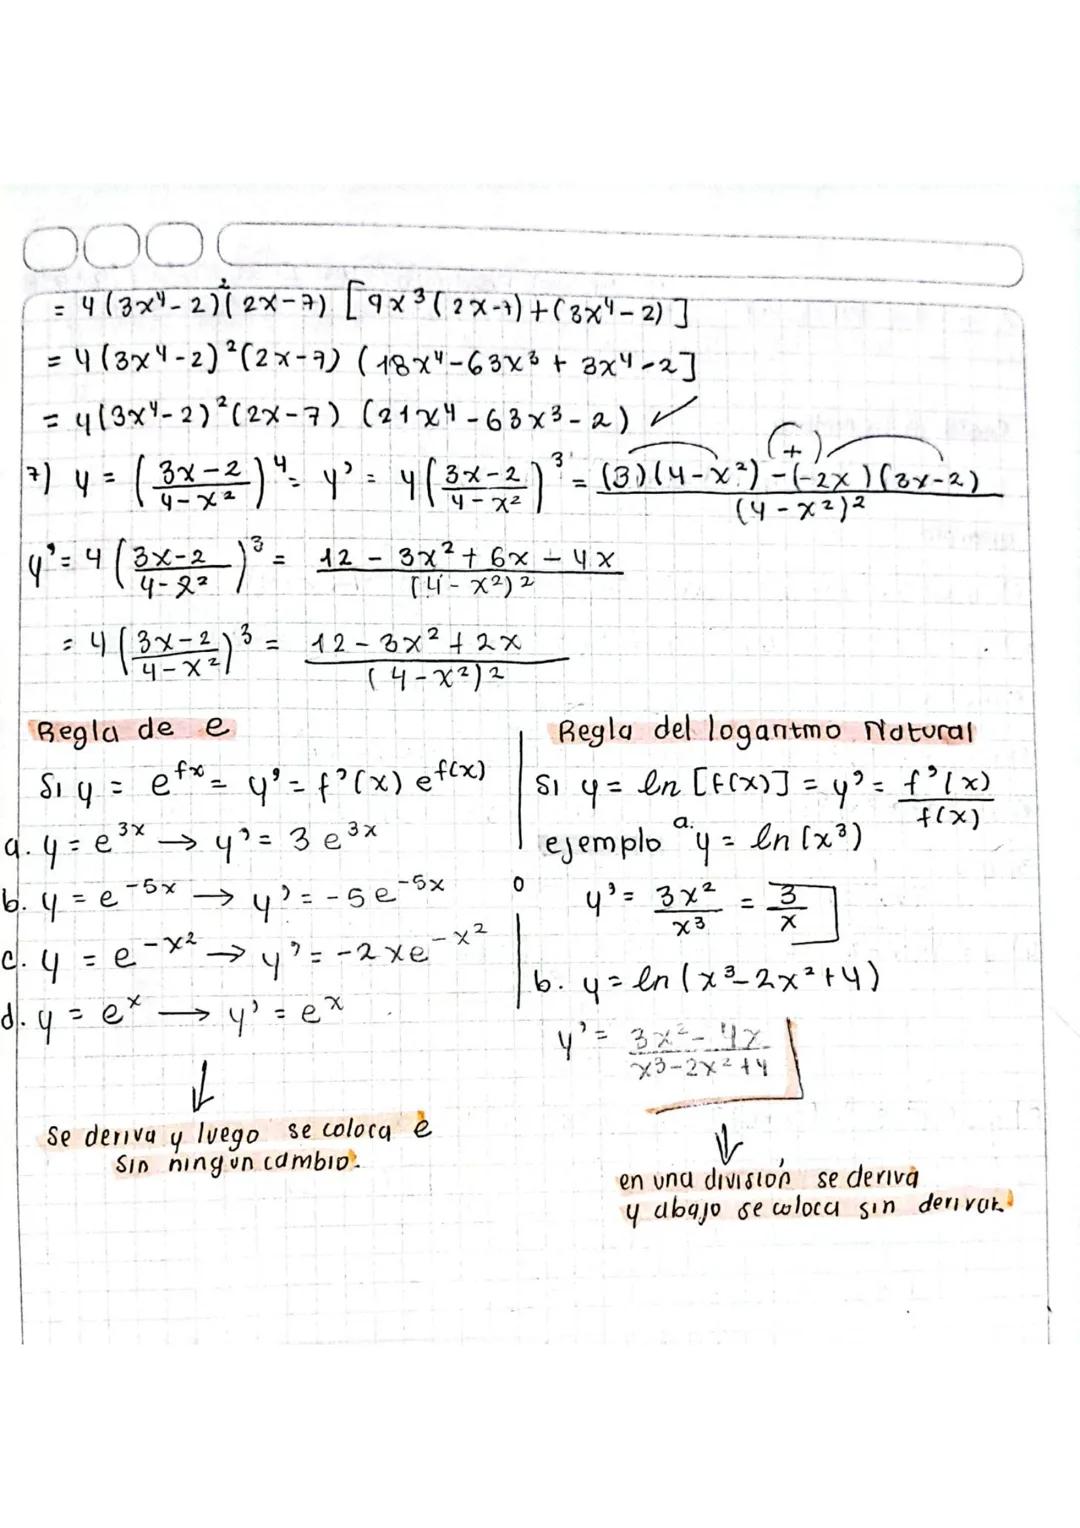 = 4(3x⁴-2)²(2x-7) [9x³(2x-7)+(3x⁴-2)]
= 4(3x⁴-2)²(2x-7) (18x⁴-63x³ + 3x⁴-2]
= 4(3x⁴-2)²(2x-7) (21x⁴-63x³-2) ✓
7) y = ((3x-2)/(4-x²))⁴ = y' = 4((3x-2)/(4-x²))³ = ((3)(4-x²) -(-2x)(3x-2))/((4-x²)²) (+)
y' = 4((3x-2)/(4-x²))³ = (12 - 3x² + 6x - 4x)/((4-x²)²)
= 4((3x-2)/(4-x²))³ = (12-3x²+2x)/((4-x²)²)
Regla de e
Si y = e^fx = y' = f'(x) e^f(x)
a. y = e^3x → y' = 3e^3x
b. y = e^-5x → y' = -5e^-5x
c. y = e^-x² → y' = -2xe^-x²
d. y = e^x → y' = e^x
↓
Se deriva y luego se coloca e
sin ningun cambio.
Regla del logaritmo Natural
Si y = ln [f(x)] = y' = f'(x)/f(x)
ejemplo a. y = ln (x³)
y' = 3x²/x³ = 3/x
b. y = ln (x³-2x²+4)
y' = (3x²-4x)/(x³-2x²+4)
↓
en una división se deriva
y abajo se coloca sin derivar.